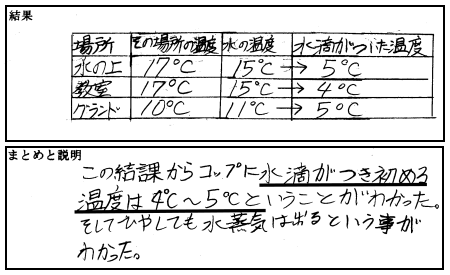 結果
場所 その場所の温度 水の温度 水滴がついた温度
水の上 17℃ 15℃→ 5℃
教室 17℃ 15℃→ 4℃
グランド 10℃ 11℃→ 5℃
まとめと説明
この結課からコップに水滴がつき初める
温度は4℃～5℃ということがわかった。
そしてひやしても水蒸気は出るという事が
わかった。